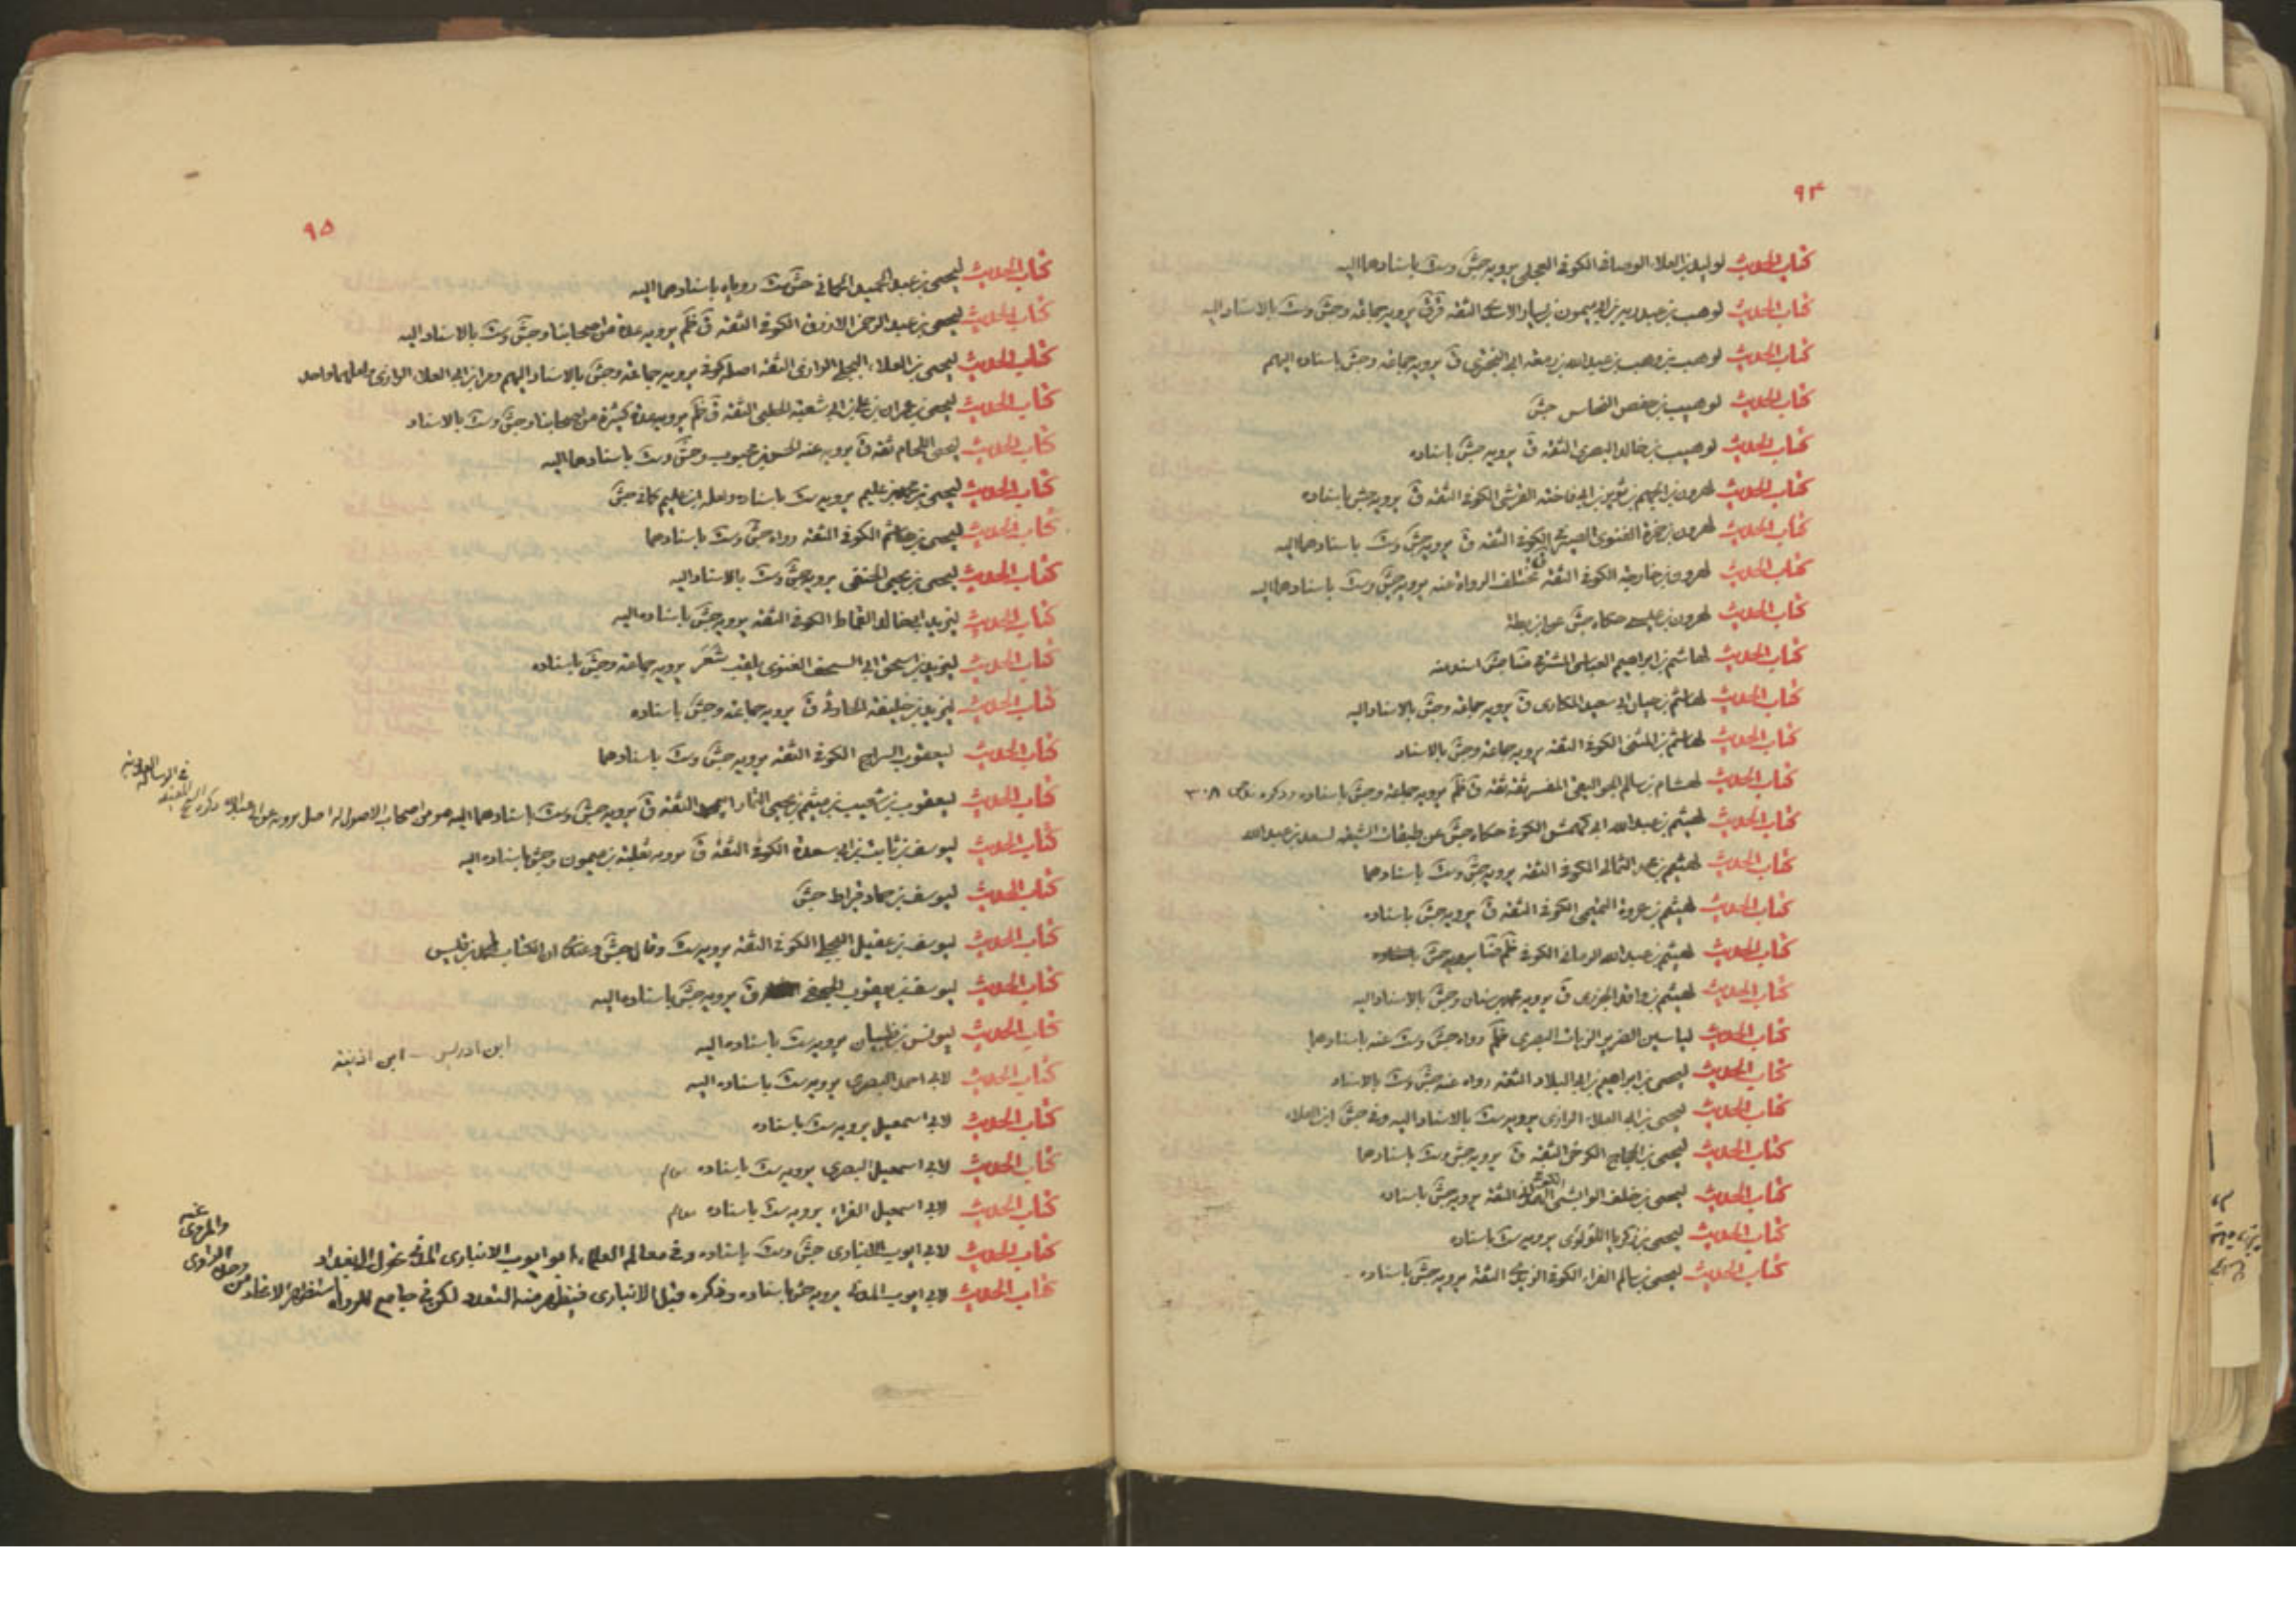 ٩٤
كتاب الحديث لوليد بن العلاء الوصافي الكوفي العجلي يرويه جش وست باسنادهما اليه
كتاب الحديث لوهب بن عبد ربه بن ابي ميمون بن يسار الاسدي الثقة قر ق يرويه جماعة وجش وست بالاسناد اليه
كتاب الحديث لوهب بن وهب بن عبد الله بن زمعة ابي البختري ق يرويه جماعة وجش باسناده اليهم
كتاب الحديث لوهيب بن حفص النخاس جش
كتاب الحديث لوهيب بن خالد البصري الثقة ق يرويه جش باسناده
كتاب الحديث لهرون بن الجهم بن ثوير بن ابي فاخته القرشي الكوفي الثقة ق يرويه جش باسناده
كتاب الحديث لهرون بن حمزة الغنوي الصيرفي الكوفي الثقة ق يرويه جش وست باسنادهما اليه
كتاب الحديث لهرون بن خارجة الكوفي الثقة ق تختلف الرواة عنه يرويه جش وست باسنادهما اليه
كتاب الحديث لهرون بن عيسى حكاه جش عن ابن بطة
كتاب الحديث لهاشم بن ابراهيم العباسي المشرقي ضا جش اسند عنه
كتاب الحديث لهاشم بن حيان ابي سعيد المكاري ق يرويه جماعة وجش بالاسناد اليه
كتاب الحديث لهاشم بن المثنى الكوفي الثقة يرويه جماعة وجش بالاسناد
كتاب الحديث لهشام بن سالم الجواليقي المفسر ثقة ثقة ق ظم يرويه جماعة وجش باسناده وذكره ٣٠٨
كتاب الحديث لهيثم بن عبد الله ابي كهمش الكوفي حكاه جش عن طبقات الشيعة لسعد بن عبد الله
كتاب الحديث لهيثم بن محمد الثمالي الكوفي الثقة يرويه جش وست باسنادهما
كتاب الحديث لهيثم بن عروة التميمي الكوفي الثقة ق يرويه جش باسناده
كتاب الحديث لهيثم بن عبد الله الرماني الكوفي ظم ضا يرويه جش باسناده
كتاب الحديث لهيثم بن واقد الجزري ق يرويه محمد بن سنان وجش بالاسناد اليه
كتاب الحديث لياسين الضرير الزيات البصري ظم رواه جش وست عنه باسنادهما
كتاب الحديث ليحيى بن ابراهيم بن ابي البلاد الثقة رواه عنه جش وست بالاسناد
كتاب الحديث ليحيى بن ابي العلاء الرازي يرويه ست بالاسناد اليه وفي جش ابن العلاء
كتاب الحديث ليحيى بن الحجاج الكرخي الثقة ق يرويه جش وست باسنادهما
كتاب الحديث ليحيى بن خلف الوابشي الكوفي الثقة يرويه جش باسناده
كتاب الحديث ليحيى بن زكريا اللؤلؤي يرويه ست باسناده
كتاب الحديث ليحيى بن سالم الفراء الكوفي الزيدي الثقة يرويه جش باسناده
٩٥
كتاب الحديث ليحيى بن عبد الحميد الحماني جش ست روياه باسنادهما اليه
كتاب الحديث ليحيى بن عبد الرحمن الازرق الكوفي الثقة ق ظم يرويه عدة من اصحابنا وجش وست بالاسناد اليه
كتاب الحديث ليحيى بن العلاء البجلي الرازي الثقة اصله كوفي يرويه جماعة وجش بالاسناد اليهم ومر ابن ابي العلاء الرازي ولعلهما واحد
كتاب الحديث ليحيى بن عمران بن علي بن ابي شعبة الحلبي الثقة ق ظم يرويه عدة كثيرة من اصحابنا وجش وست بالاسناد
كتاب الحديث ليحيى اللحام ثقة ق يرويه عنه الحسن بن محبوب وجش وست باسنادهما اليه
كتاب الحديث ليحيى بن محمد بن عليم يرويه ست باسناده ولعله ابن عليم كما في جش
كتاب الحديث ليحيى بن هاشم الكوفي الثقة رواه جش وست باسنادهما
كتاب الحديث ليحيى بن يحيى الحنفي يرويه جش وست بالاسناد اليه
كتاب الحديث ليزيد ابي خالد القماط الكوفي الثقة يرويه جش باسناده اليه
كتاب الحديث ليزيد بن اسحق ابي السخف الغنوي يلقب شغر يرويه جماعة وجش باسناده
كتاب الحديث ليزيد بن خليفة الحارثي ق يرويه جماعة وجش باسناده
كتاب الحديث ليعقوب السراج الكوفي الثقة يرويه جش وست باسنادهما
كتاب الحديث ليعقوب بن شعيب بن ميثم بن يحيى التمار الثقة ق يرويه جش وست باسنادهما اليه هو من اصحاب الاصول له اصل يرويه عن ابي عبد الله ذكره الشيخ المفيد في الرسالة العددية
كتاب الحديث ليوسف بن ثابت بن ابي سعدة الكوفي الثقة ق يرويه ثعلبة بن ميمون وجش باسناده اليه
كتاب الحديث ليوسف بن حماد خراط جش
كتاب الحديث ليوسف بن عقيل البجلي الكوفي الثقة يرويه ست وقال جش وعندي ان الكتاب لمحمد بن قيس
كتاب الحديث ليوسف بن يعقوب الجعفي ق يرويه جش باسناده اليه
كتاب الحديث ليونس بن ظبيان يرويه ست باسناده اليه
ابن ادريس - ابن اذينة
كتاب الحديث لابي احمد البصري يرويه ست باسناده اليه
كتاب الحديث لابي اسمعيل يرويه ست باسناده
كتاب الحديث لابي اسمعيل البصري يرويه ست باسناده
كتاب الحديث لابي اسمعيل الفراء يرويه ست باسناده
كتاب الحديث لابي ايوب الانباري جش وست باسناده وفي معالم العلماء ابو ايوب الانباري المدني تحول الى بغداد
كتاب الحديث لابي ايوب المدني يرويه جش باسناده وذكره قبل الانباري فيظهر منه التعدد لكن في جامع الرواة استظهر الاتحاد من وحدة الراوي والمروي عنه